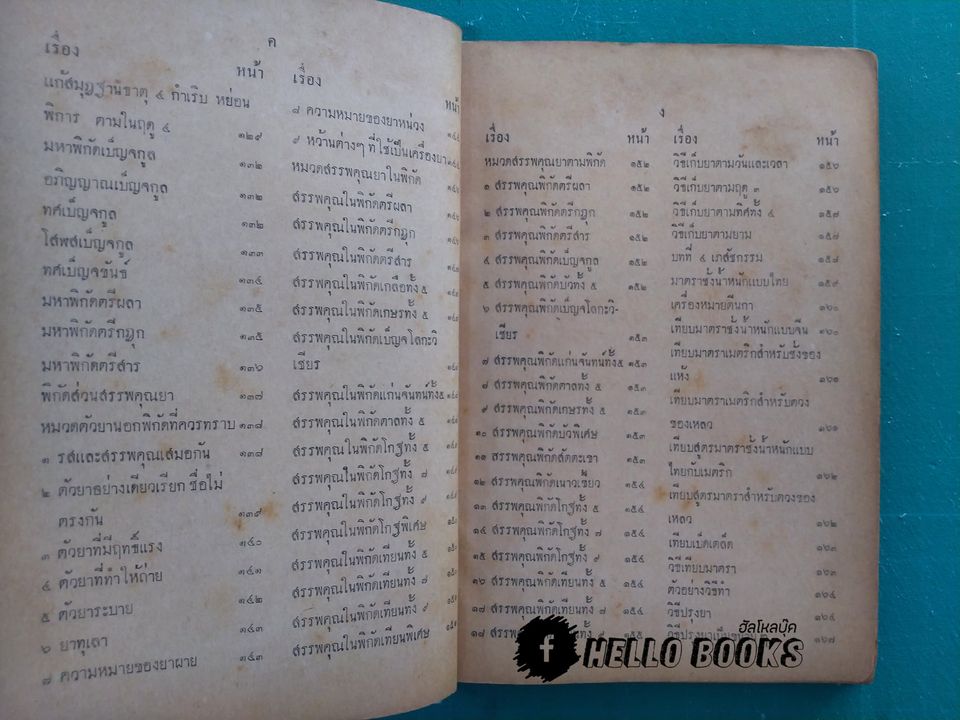 ค
เรื่อง
หน้า
แก้สมุฏฐานธาตุ ๔ กำเริบ หย่อน
พิการ ตามในฤดู ๔ ๑๒๙
มหาพิกัดเบ็ญจกูล ๑๓๒
อภิญญาณเบ็ญจกูล ๑๓๒
ทศเบ็ญจกูล ๑๓๒
โสฬสเบ็ญจกูล ๑๓๓
ทศเบ็ญจขันธ์ ๑๓๔
มหาพิกัดตรีผลา ๑๓๕
มหาพิกัดตรีกฏุก ๑๓๕
มหาพิกัดตรีสาร ๑๓๖
พิกัดส่วนสรรพคุณยา ๑๓๗
หมวดตัวยานอกพิกัดที่ควรทราบ ๑๓๘
๑ รสและสรรพคุณเสมอกัน ๑๓๘
๒ ตัวยาอย่างเดียวเรียก ชื่อไม่
ตรงกัน ๑๓๙
๓ ตัวยาที่มีฤทธิ์แรง ๑๔๐
๔ ตัวยาที่ทำให้ถ่าย ๑๔๑
๕ ตัวยาระบาย ๑๔๒
๖ ยาทุเลา ๑๔๓
๗ ความหมายของยาผาย ๑๔๓
เรื่อง
หน้า
๘ ความหมายของยาหน่วง
๙ หว้านต่างๆ ที่ใช้เป็นเครื่องยา
หมวดสรรพคุณยาในพิกัด
สรรพคุณในพิกัดตรีผลา
สรรพคุณในพิกัดตรีกฏุก
สรรพคุณในพิกัดตรีสาร
สรรพคุณในพิกัดเกลือทั้ง ๕
สรรพคุณในพิกัดเกษรทั้ง ๕
สรรพคุณในพิกัดเบ็ญจโลกะวิ
เชียร
สรรพคุณในพิกัดแก่นจันทน์ทั้ง๕
สรรพคุณในพิกัดตาลทั้ง ๕
สรรพคุณในพิกัดโกฐทั้ง ๕
สรรพคุณในพิกัดโกฐทั้ง ๗
สรรพคุณในพิกัดโกฐทั้ง ๙
สรรพคุณในพิกัดโกฐพิเศษ
สรรพคุณในพิกัดเทียนทั้ง ๕
สรรพคุณในพิกัดเทียนทั้ง ๗
สรรพคุณในพิกัดเทียนทั้ง ๙
สรรพคุณในพิกัดเทียนพิเศษ
ง
เรื่อง หน้า
หมวดสรรพคุณยาตามพิกัด ๑๕๒
๑ สรรพคุณพิกัดตรีผลา ๑๕๒
๒ สรรพคุณพิกัดตรีกฏุก ๑๕๒
๓ สรรพคุณพิกัดตรีสาร ๑๕๒
๔ สรรพคุณพิกัดเบ็ญจกูล ๑๕๒
๕ สรรพคุณพิกัดบัวทั้ง ๕ ๑๕๒
๖ สรรพคุณพิกัดเบ็ญจโลกะวิ-
เชียร ๑๕๓
๗ สรรพคุณพิกัดแก่นจันทน์ทั้ง๕ ๑๕๓
๘ สรรพคุณพิกัดตาลทั้ง ๕ ๑๕๓
๙ สรรพคุณพิกัดเกษรทั้ง ๕ ๑๕๓
๑๐ สรรพคุณพิกัดบัวพิเศษ ๑๕๓
๑๑ สรรพคุณพิกัดสัตตะเขา ๑๕๓
๑๒ สรรพคุณพิกัดเนาวเขี้ยว ๑๕๔
๑๓ สรรพคุณพิกัดโกฐทั้ง ๕ ๑๕๔
๑๔ สรรพคุณพิกัดโกฐทั้ง ๗ ๑๕๔
๑๕ สรรพคุณพิกัดโกฐทั้ง ๙ ๑๕๔
๑๖ สรรพคุณพิกัดเทียนทั้ง ๕ ๑๕๔
๑๗ สรรพคุณพิกัดเทียนทั้ง ๗ ๑๕๔
๑๘ ๑๕๕
เรื่อง หน้า
วิธีเก็บยาตามวันและเวลา ๑๕๖
วิธีเก็บยาตามฤดู ๓ ๑๕๖
วิธีเก็บยาตามทิศทั้ง ๔ ๑๕๗
วิธีเก็บยาตามยาม ๑๕๘
บทที่ ๔ เภสัชกรรม ๑๕๘
มาตราชั่งน้ำหนักแบบไทย ๑๕๙
เครื่องหมายตีนกา
เทียบมาตราชั่งน้ำหนักแบบจีน ๑๖๐
เทียบมาตราเมตริกสำหรับชั่งของ
แห้ง ๑๖๑
เทียบมาตราเมตริกสำหรับตวง
ของเหลว ๑๖๑
เทียบสูตรมาตราชั่งน้ำหนักแบบ
ไทยกับเมตริก ๑๖๒
เทียบสูตรมาตราสำหรับตวงของ
เหลว ๑๖๒
เทียบเบ็ดเตล็ด ๑๖๓
วิธีเทียบมาตรา ๑๖๓
ตัวอย่างวิธีทำ ๑๖๔
วิธีปรุงยา ๑๖๔
๑๖๗
ฮัลโหลบุ๊ค
f HELLO BOOKS